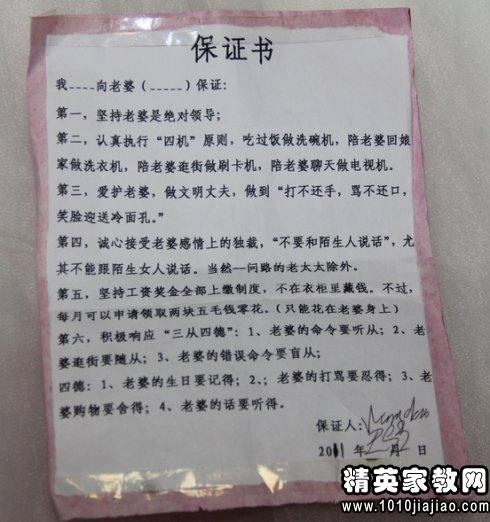 保证书
我----向老婆（-----）保证：
第一，坚持老婆是绝对领导；
第二，认真执行“四机”原则，吃过饭做洗碗机，陪老婆回娘
家做洗衣机，陪老婆逛街做刷卡机，陪老婆聊天做电视机。
第三，爱护老婆，做文明丈夫，做到“打不还手，骂不还口，
笑脸迎送冷面孔。”
第四，诚心接受老婆感情上的独裁，“不要和陌生人说话”，尤
其不能跟陌生女人说话。当然--问路的老太太除外。
第五，坚持工资奖金全部上缴制度，不在衣柜里藏钱。不过，
每月可以申请领取两块五毛钱零花。（只能花在老婆身上）
第六，积极响应“三从四德”：1、老婆的命令要听从；2、老
婆逛街要随从；3、老婆的错误命令要盲从；
四德：1、老婆的生日要记得；2、；老婆的打骂要忍得；3、老
婆购物要舍得；4、老婆的话要听得。
保证人：
2011 年 月 日
精英家教网
www.1010jiajiao.com